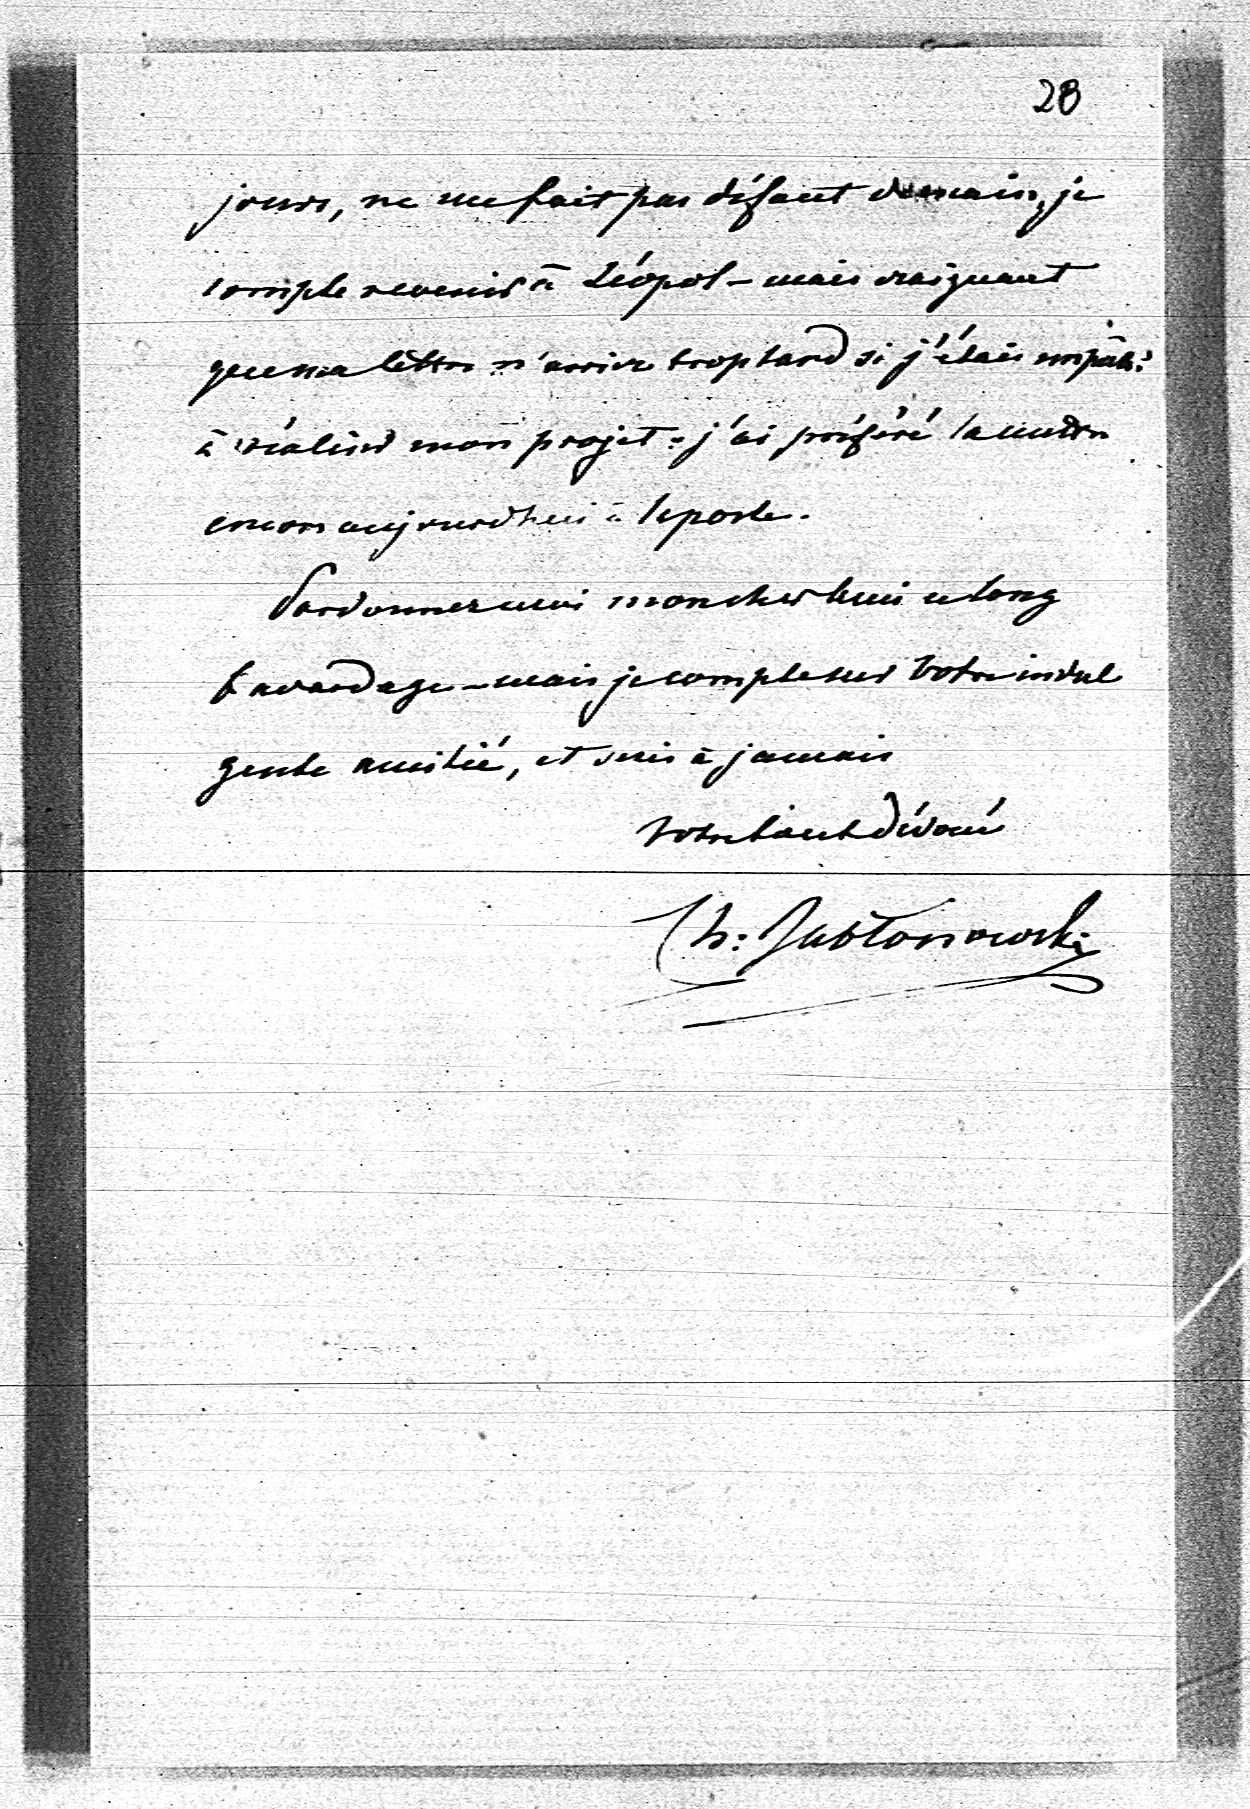 28
jours, ne me fait pas défaut demain, je
compte revenir à Léopol - mais craignant
que ma lettre n'arrive trop tard si j'étais
à réaliser mon projet - j'ai préféré la mettre
encore aujourdhui à la poste.
Pardonnez moi mon cher ce long
bavardage - mais je compte sur Votre indul
gente amitié, et suis à jamais
Votre tout dévoué
Ch: Jabłonowski